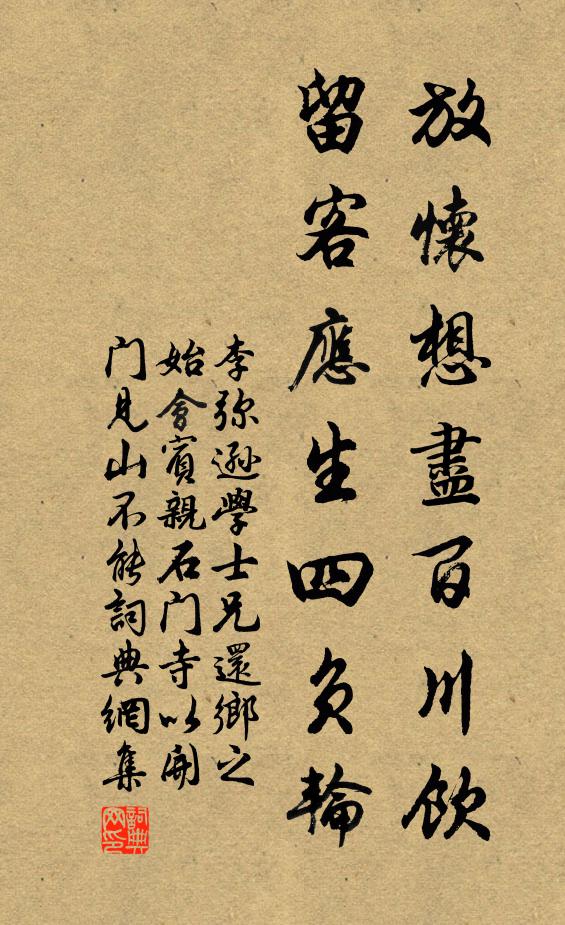 放懷想盡百川飲
留客應生四角輪
李弥遜學士兄還鄉之
始會賓親石门寺以開
门見山不能詞典網集
詞典网印